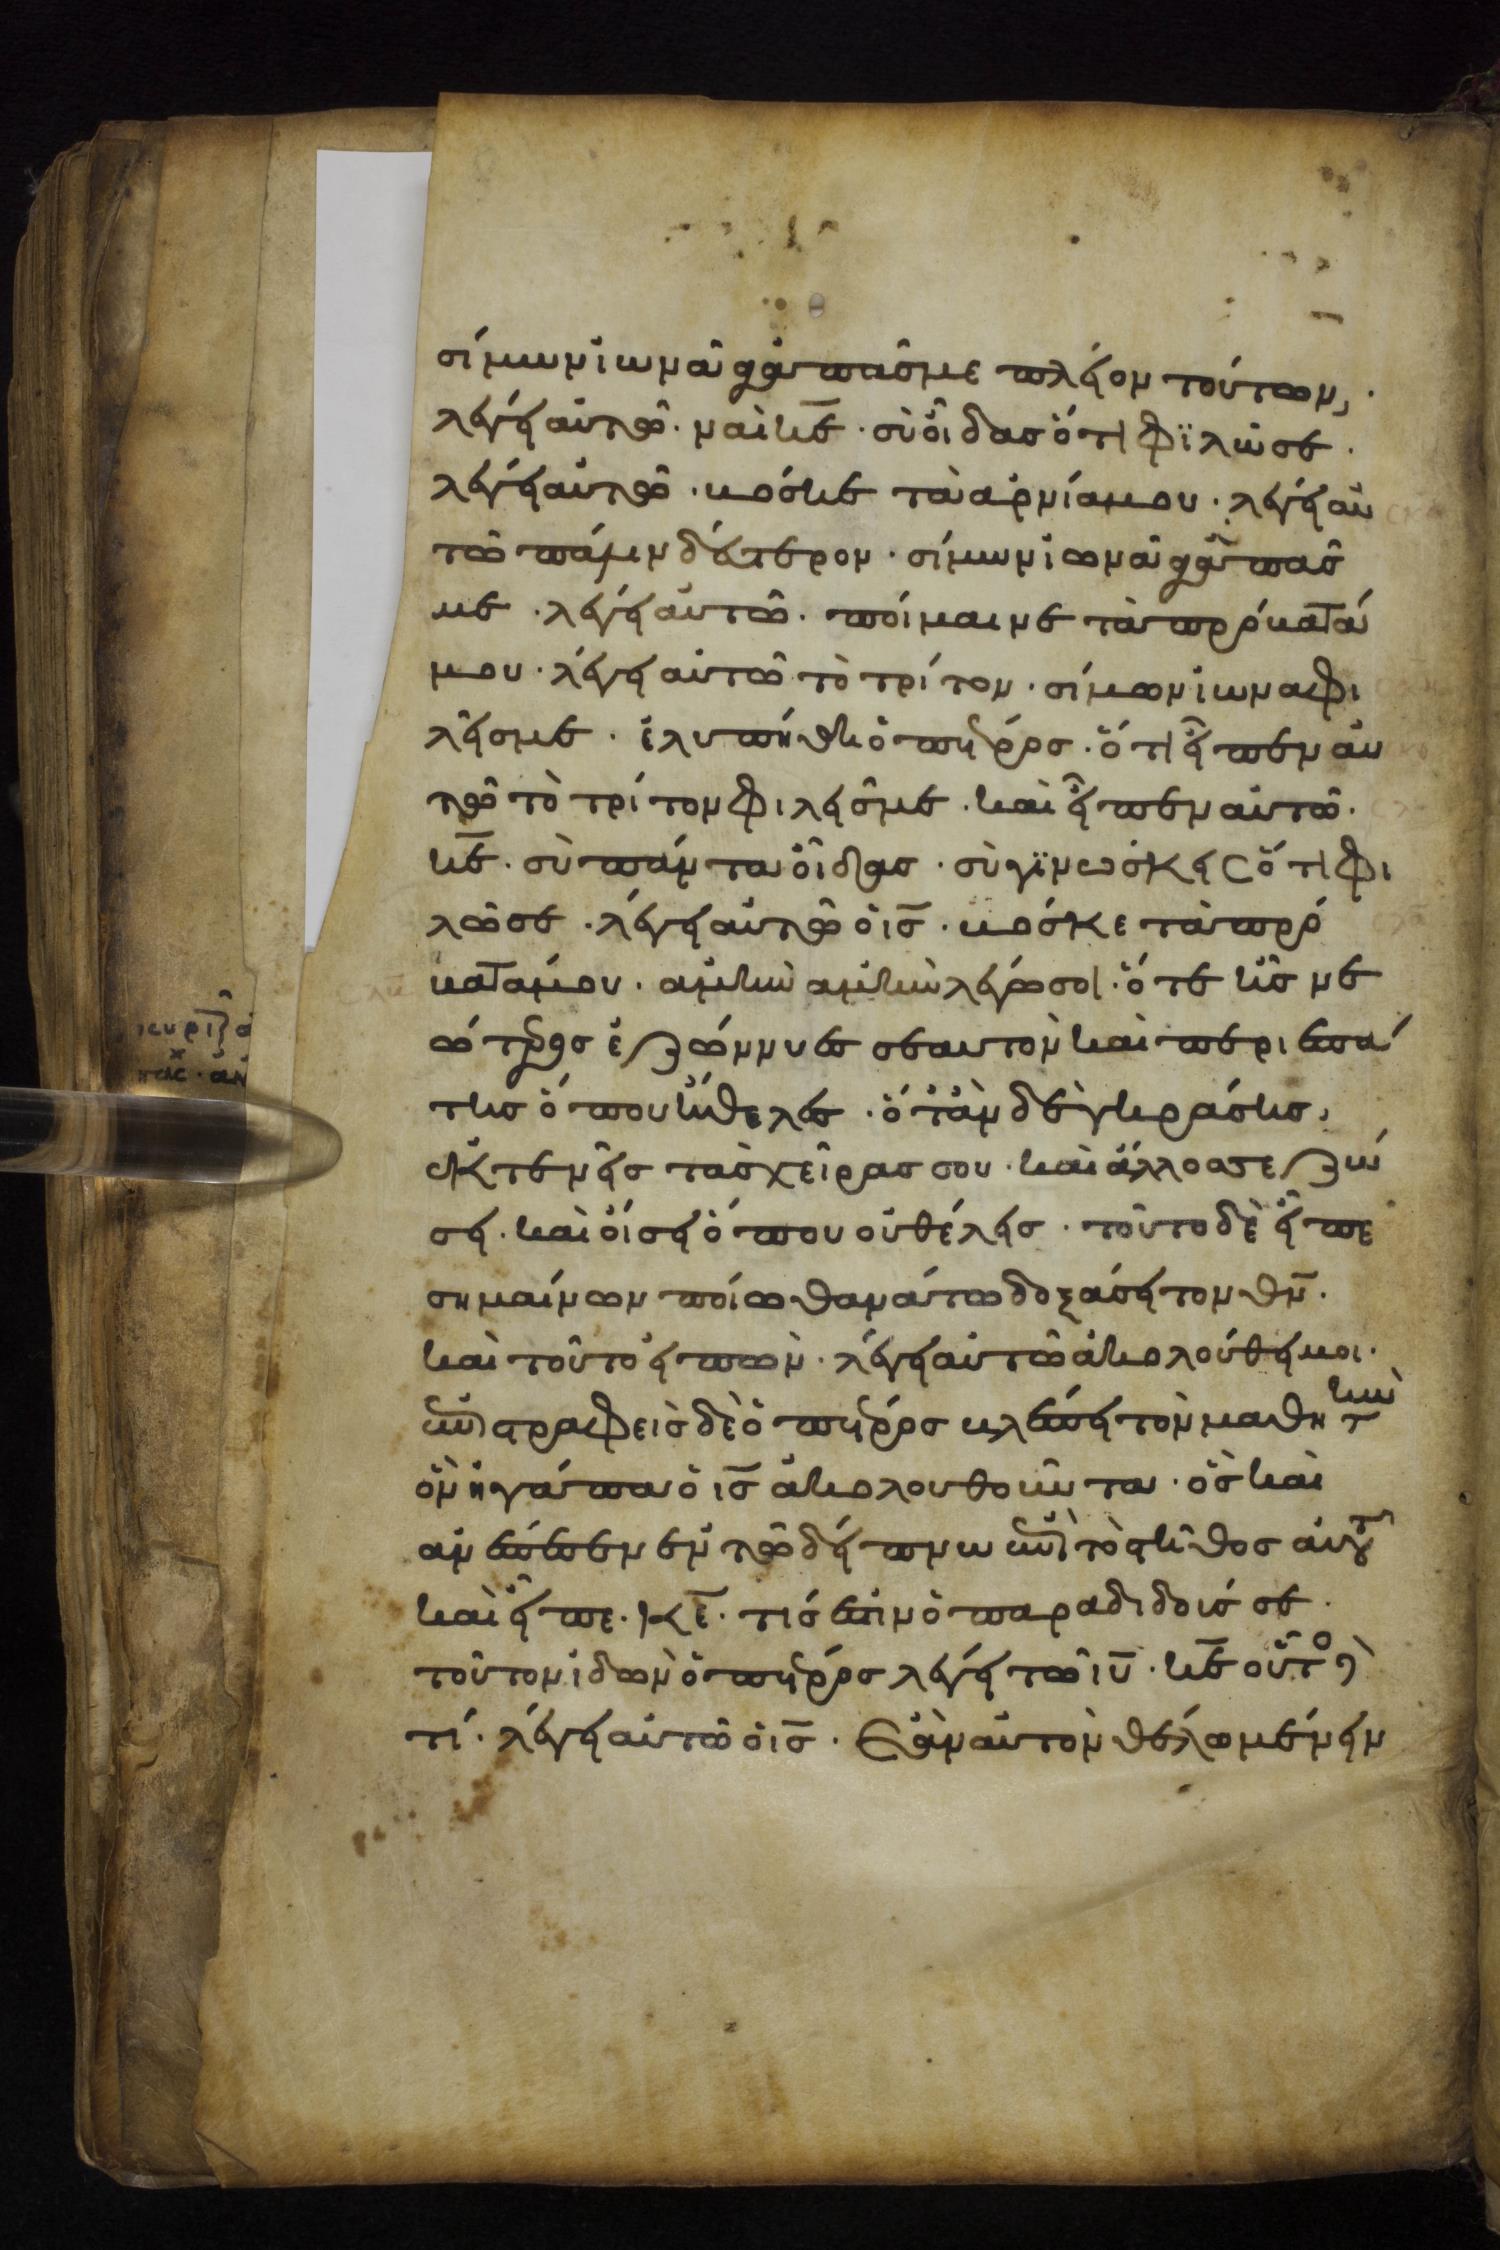 σίμων ἰωνᾶ ἀγαπᾶς με πλέιον τούτων,
λέγει αὐτῶ· ναὶ κε̅ · σὺ οἶδας ὅτι φϊλῶ σε ·
λέγει αὐτῶ · βόσκε τὰ ἀρνία μου · λέγει αὐ
τῶ πάλιν δέυτερον · σίμων ἰωνᾶ ἀγαπᾶς
με · λέγει αὐτῶ · ποίμαινε τὰ πρόβατά
μου · λέγει αὐτῶ τὸ τρίτον · σίμων ἰωνα φι
λεῖς με · ἐλυπήθη ὁ πέτρος · ὅτι εἶπεν αὐ
τῶ τὸ τρίτον φιλεῖς με · καὶ εἶπεν αὐτῶ ·
κε̅ · σὺ πάντα οἶδας · σὺ γϊνώσκεις ὅτι φι
λῶ σε · λέγει αὐτῶ ὁ ις̅ · βόσκε τὰ πρό
βατα μου · ἀμὴν ἀμὴν λέγω σοι · ὅτε ἦς νε
ώτερος ἐζώννυες σεαυτὸν καὶ περιεπά
της ὅπου ἤθελες · ὅταν δὲ γηράσης,
ἐκτενεῖς τὰς χεῖρας σου · καὶ ἄλλος σε ζώ
σει · καὶ οἴσει ὅπου οὐ θέλεις · τοῦτο δὲ εἶπε
σημαίνων ποίω θανάτω δοξάσει τον θν̅ ·
καὶ τοῦτο εἰπὼν · λέγει αὐτῶ ἀκολούθει μοι ·
ἐπιστραφεὶς δὲ ὁ πέτρος βλέπει τὸν μαθητ(ὴν)
ὃν ἠγάπα ὁ ις̅ ἀκολουθοῦντα · ὃς καὶ
ἀνέπεσεν ἐν τῶ δείπνω ἐπὶ τὸ στῆθος αὐτοῦ
καὶ εἶπε · κε̅ · τίς ἐστιν ὁ παραδιδούς σε ·
τοῦτον ἰδὼν ὁ πέτρος λέγει τῶ ιυ̅ · κε̅ οὗτος δὲ
τί · λέγει αὐτῶ ὁ ις̅ · Ἐὰν αὐτὸν θέλω μένειν